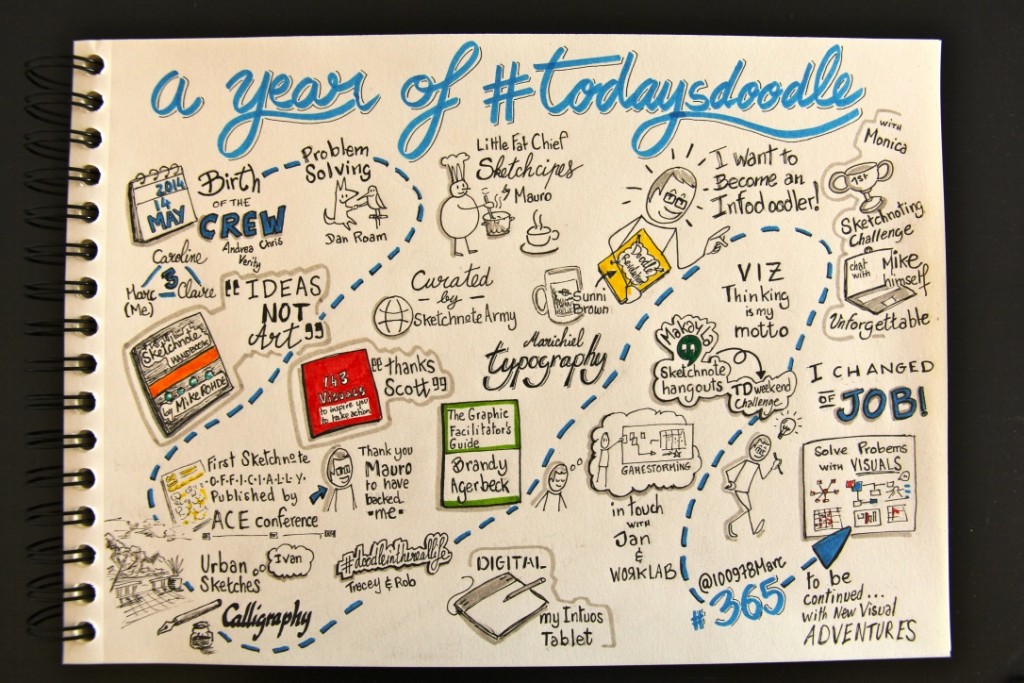 a year of #todaysdoodle
2014
14
MAY
Birth
OF THE
CREW
Andrea Chris
Verity
Caroline
3
Marc Claire
(Me)
Problem
Solving
Dan Roam
Little Fat Chief
Sketchcipes
Mauro
I want to
Become an
Infodoodler!
with
Monica
1st
Sketchnoting
Challenge
chat
with Mike
himself
Unforgettable
"IDEAS
NOT
Art"
Sketchnote
HANDBOOK
by Mike ROHDE
Curated
by
SketchnoteArmy
Doodle
Revolution
Sunni
Brown
VIZ
Thinking
is my
motto
143
Visuals
to inspire you
to take action
"thanks
Scott"
Marichiel
typography
Makayla
Sketchnote
hangouts
TD weekend
Challenge
I CHANGED
OF JOB!
The Graphic
Facilitator's
Guide
Brandy
Agerbeck
First Sketchnote
O.F.F.I.C.I.A.L.L.Y.
Published by
ACE conference
Thank you
Mauro
to have
backed
"me"
GAMESTORMING
in Touch
with
Jan
&
WORKLAB
Solve Probems
with VISUALS
Urban
Sketches
Ivan
#doodleinthereallife
Tracey & Rob
Calligraphy
DIGITAL
my Intuos
Tablet
@100978Marc
#365
to be
continued...
with New Visual
ADVENTURES